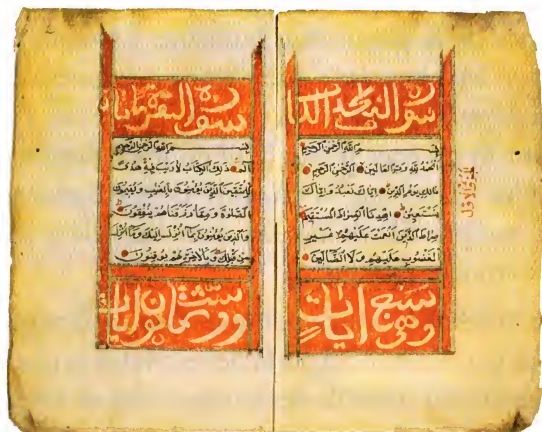 سورة
بسم الله الرحمن الرحيم
الحمد لله رب العالمين الرحمن الرحيم
مالك يوم الدين اياك نعبد واياك
نستعين اهدنا الصراط المستقيم
صراط الذين انعمت عليهم غير
المغضوب عليهم ولا الضالين
وهي سبع ايات
الجزء الاول
سورة البقرة
بسم الله الرحمن الرحيم
الم ذلك الكتاب لا ريب فيه هدى
للمتقين الذين يؤمنون بالغيب ويقيمون
الصلاة ومما رزقناهم ينفقون
والذين يؤمنون بما انزل اليك وما انزل
من قبلك وبالاخرة هم يوقنون
وست وثمانون ايات